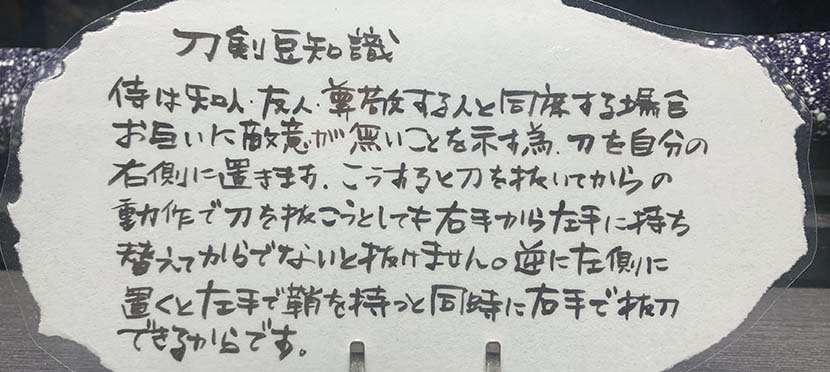 刀剣豆知識
侍は知人・友人・尊敬する人と同席する場合
お互いに敵意が無いことを示す為、刀を自分の
右側に置きます。こうすると刀を抜いてからの
動作で刀を抜こうとしても右手から左手に持ち
替えてからでないと抜けません。逆に左側に
置くと左手で鞘を持つと同時に右手で抜刀
できるからです。